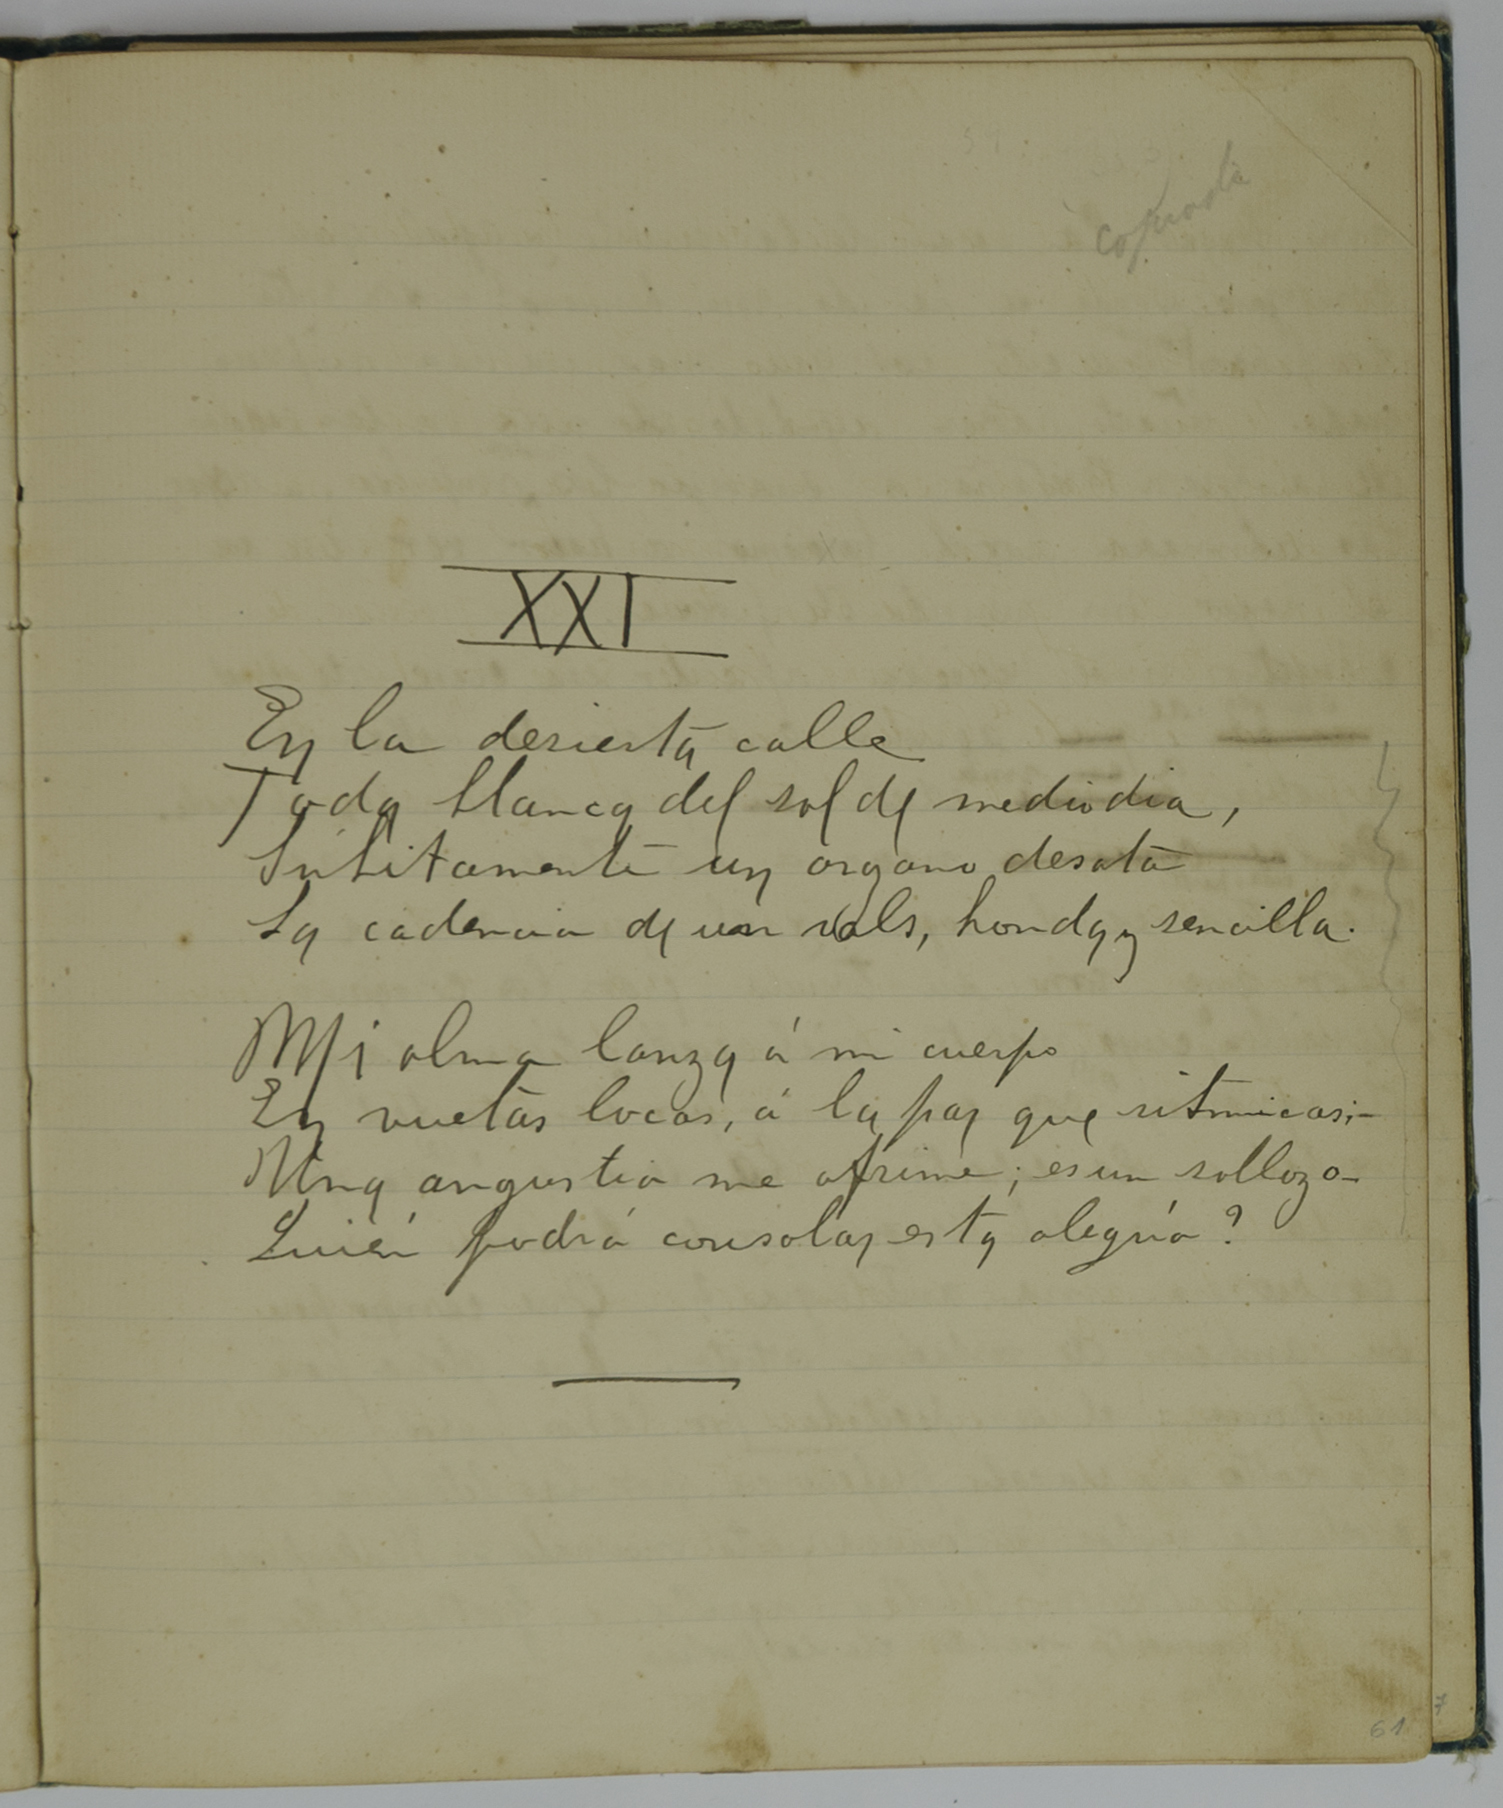 copiada
XXI
En la desierta calle
Toda blanca del sol de mediodia,
Súbitamente un organo desata
La cadencia de un vals, honda y sencilla.
Mi alma lanza á mi cuerpo
En vueltas locas, á la par que ritmicas;-
Una angustia me oprime; es un sollozo-
Quién podrá consolar esta alegría?
61
7